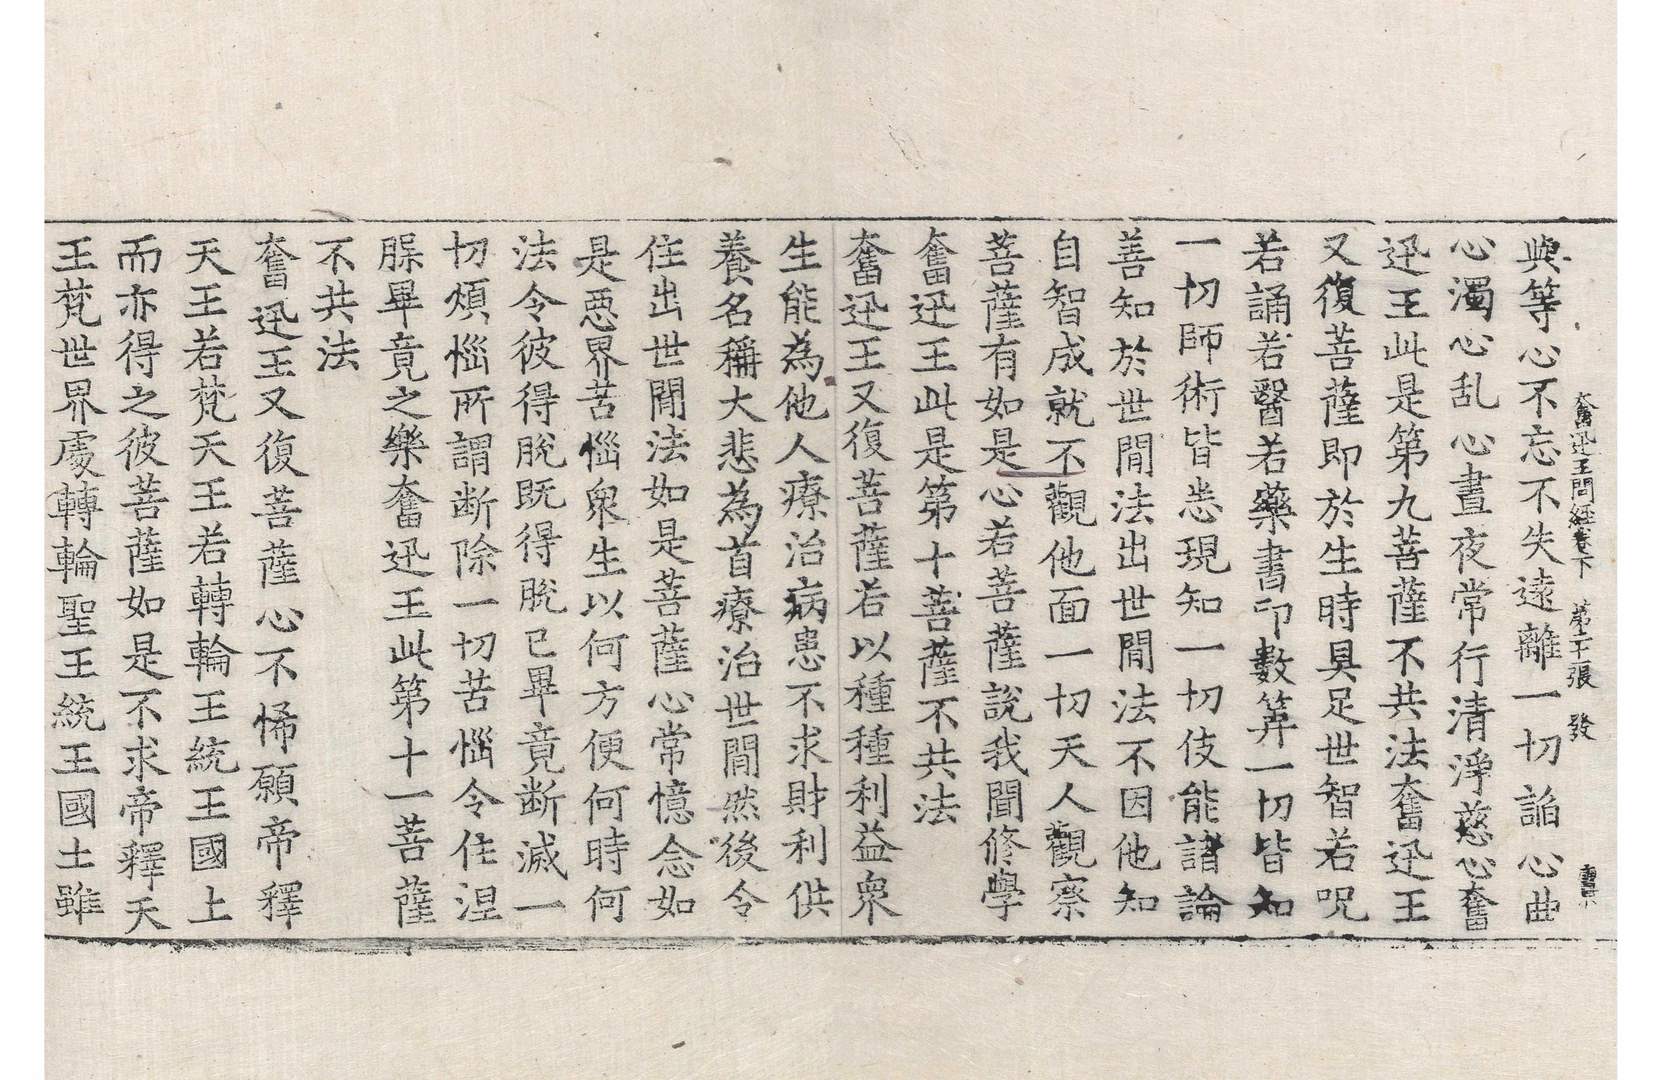 奮迅王問經卷下 第二十張 發
與等心不忘不失遠離一切諂心曲
心濁心乱心晝夜常行清淨慈心奮
迅王此是第九菩薩不共法奮迅王
又復菩薩即於生時具足世智若呪
若誦若醫若藥書印數筭一切皆知
一切師術皆悉現知一切伎能諸論
善知於世間法出世間法不因他知
自智成就不觀他面一切天人觀察
菩薩有如是心若菩薩說我聞修學
奮迅王此是第十菩薩不共法
奮迅王又復菩薩若以種種利益衆
生能為他人療治病患不求財利供
養名稱大悲為首療治世間然後令
住出世間法如是菩薩心常憶念如
是惡界苦惱衆生以何方便何時何
法令彼得脫既得脫已畢竟断滅一
切煩惱所謂断除一切苦惱令住涅
槃畢竟之樂奮迅王此第十一菩薩
不共法
奮迅王又復菩薩心不悕願帝釋
天王若梵天王若轉輪王統王國土
而亦得之彼菩薩如是不求帝釋天
王梵世界處轉輪聖王統王國土雖